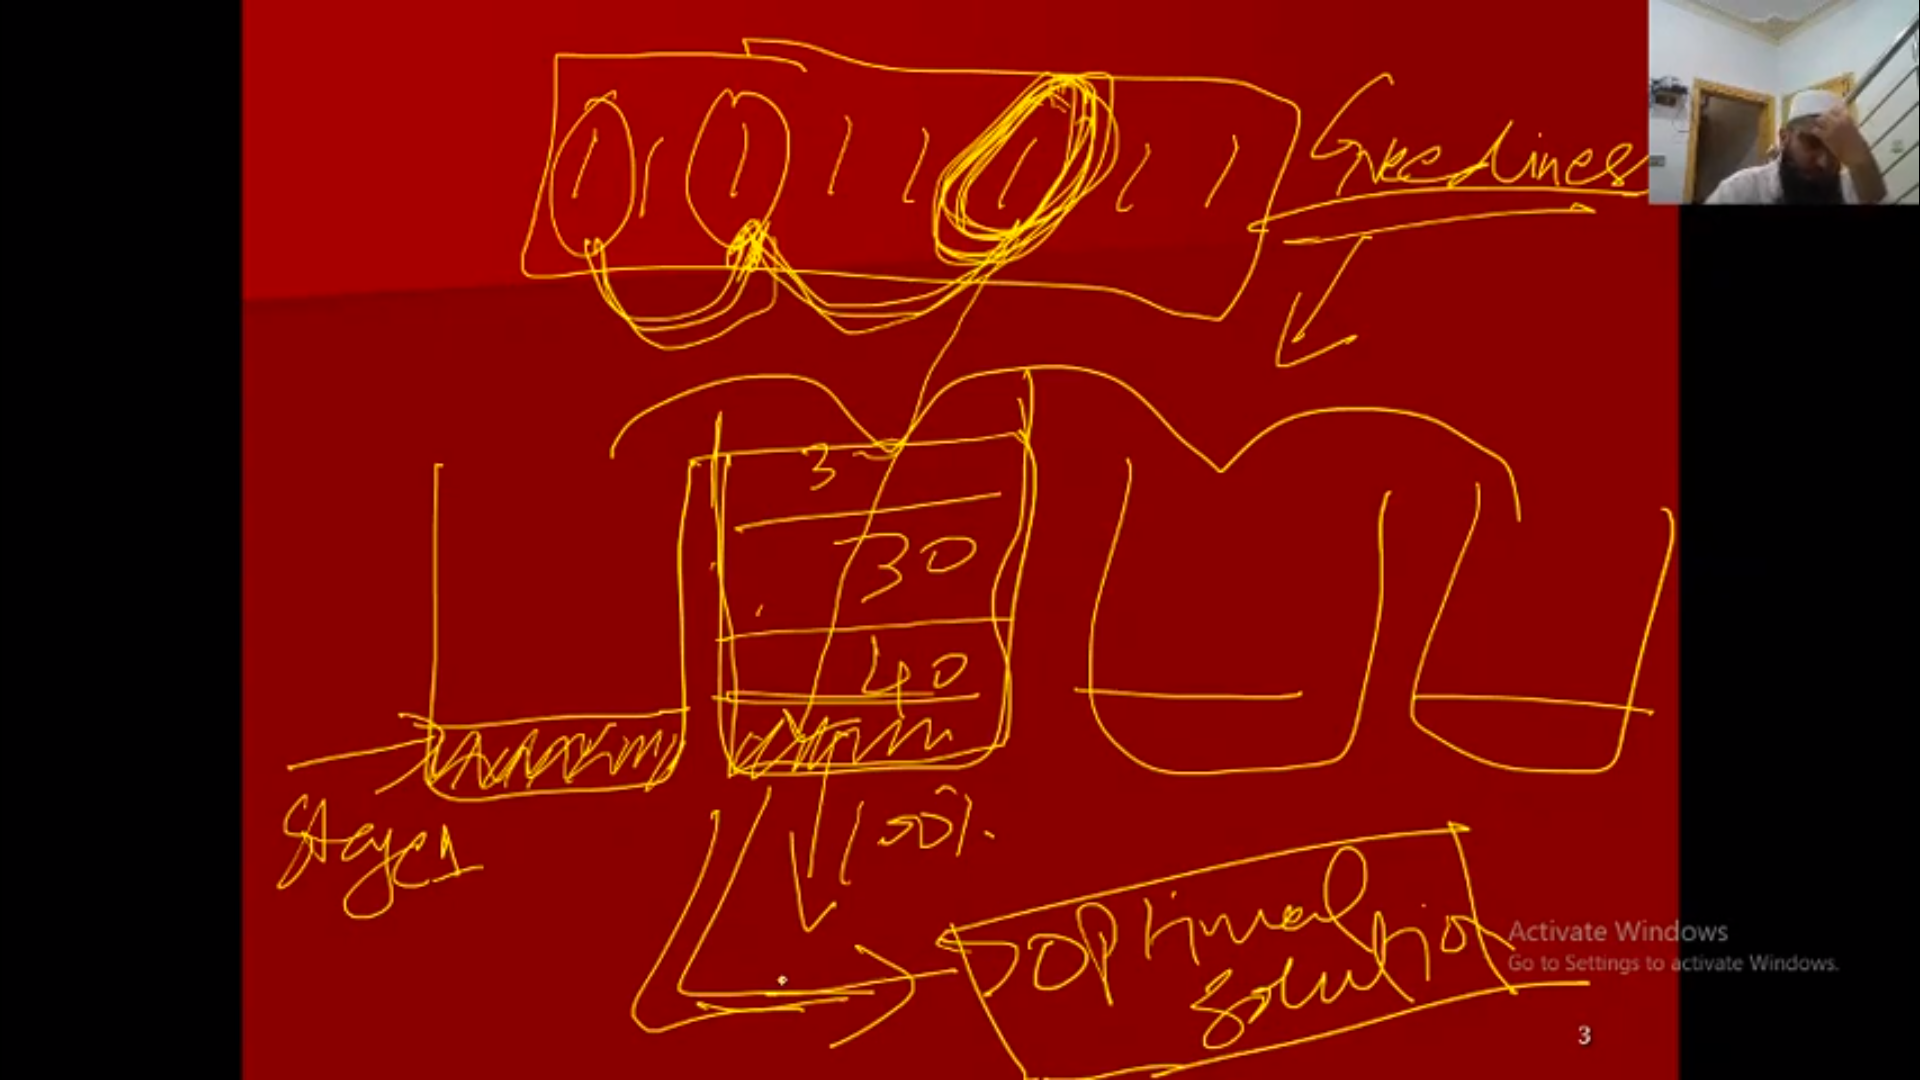 Greediness
3
30
40
Stage 1
100%.
optimal
solution
Activate Windows
Go to Settings to activate Windows.
3